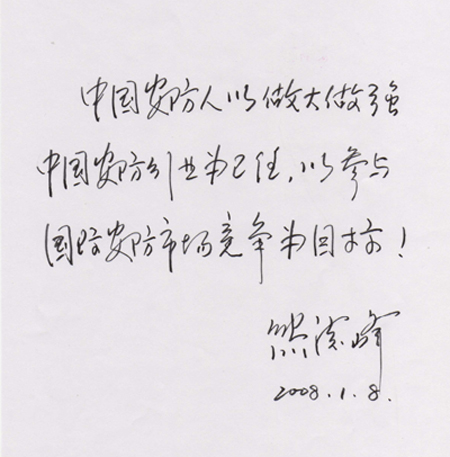 中国安防人以做大做强
中国安防行业为己任,以参与
国际安防市场竞争为目标!
熊 峰
2008.1.8.